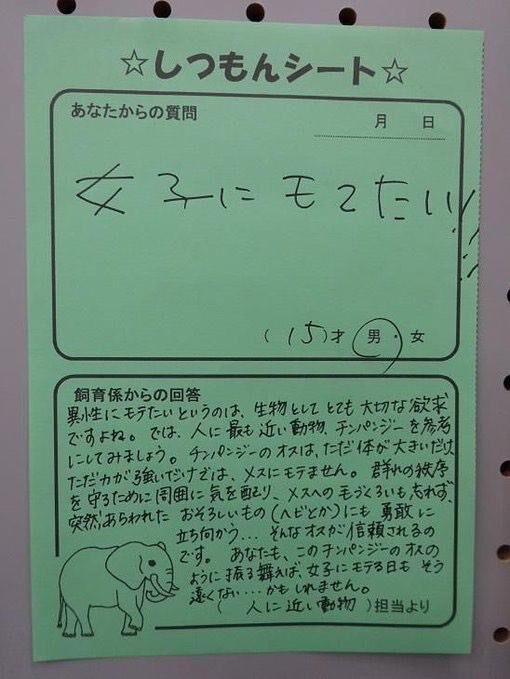 ☆しつもんシート☆
あなたからの質問
月 日
女子にモてたい!!
(15)才 男・女
飼育係からの回答
異性にモテたいというのは、生物としてとても大切な欲求
ですよね。では、人に最も近い動物、チンパンジーを参考
にしてみましょう。チンパンジーのオスは、ただ体が大きいだけ、
ただ力が強いだけでは、メスにモテません。群れの秩序
を守るために周囲に気を配り、メスへの毛づくろいも忘れず、
突然あらわれた おそろしいもの(ヘビとか)にも勇敢に
立ち向かう…そんなオスが信頼されるの
です。あなたも、このチンパンジーのオスの
ように振る舞えば、女子にモテる日も そう
遠くない…かもしれません。
(人に近い動物)担当より